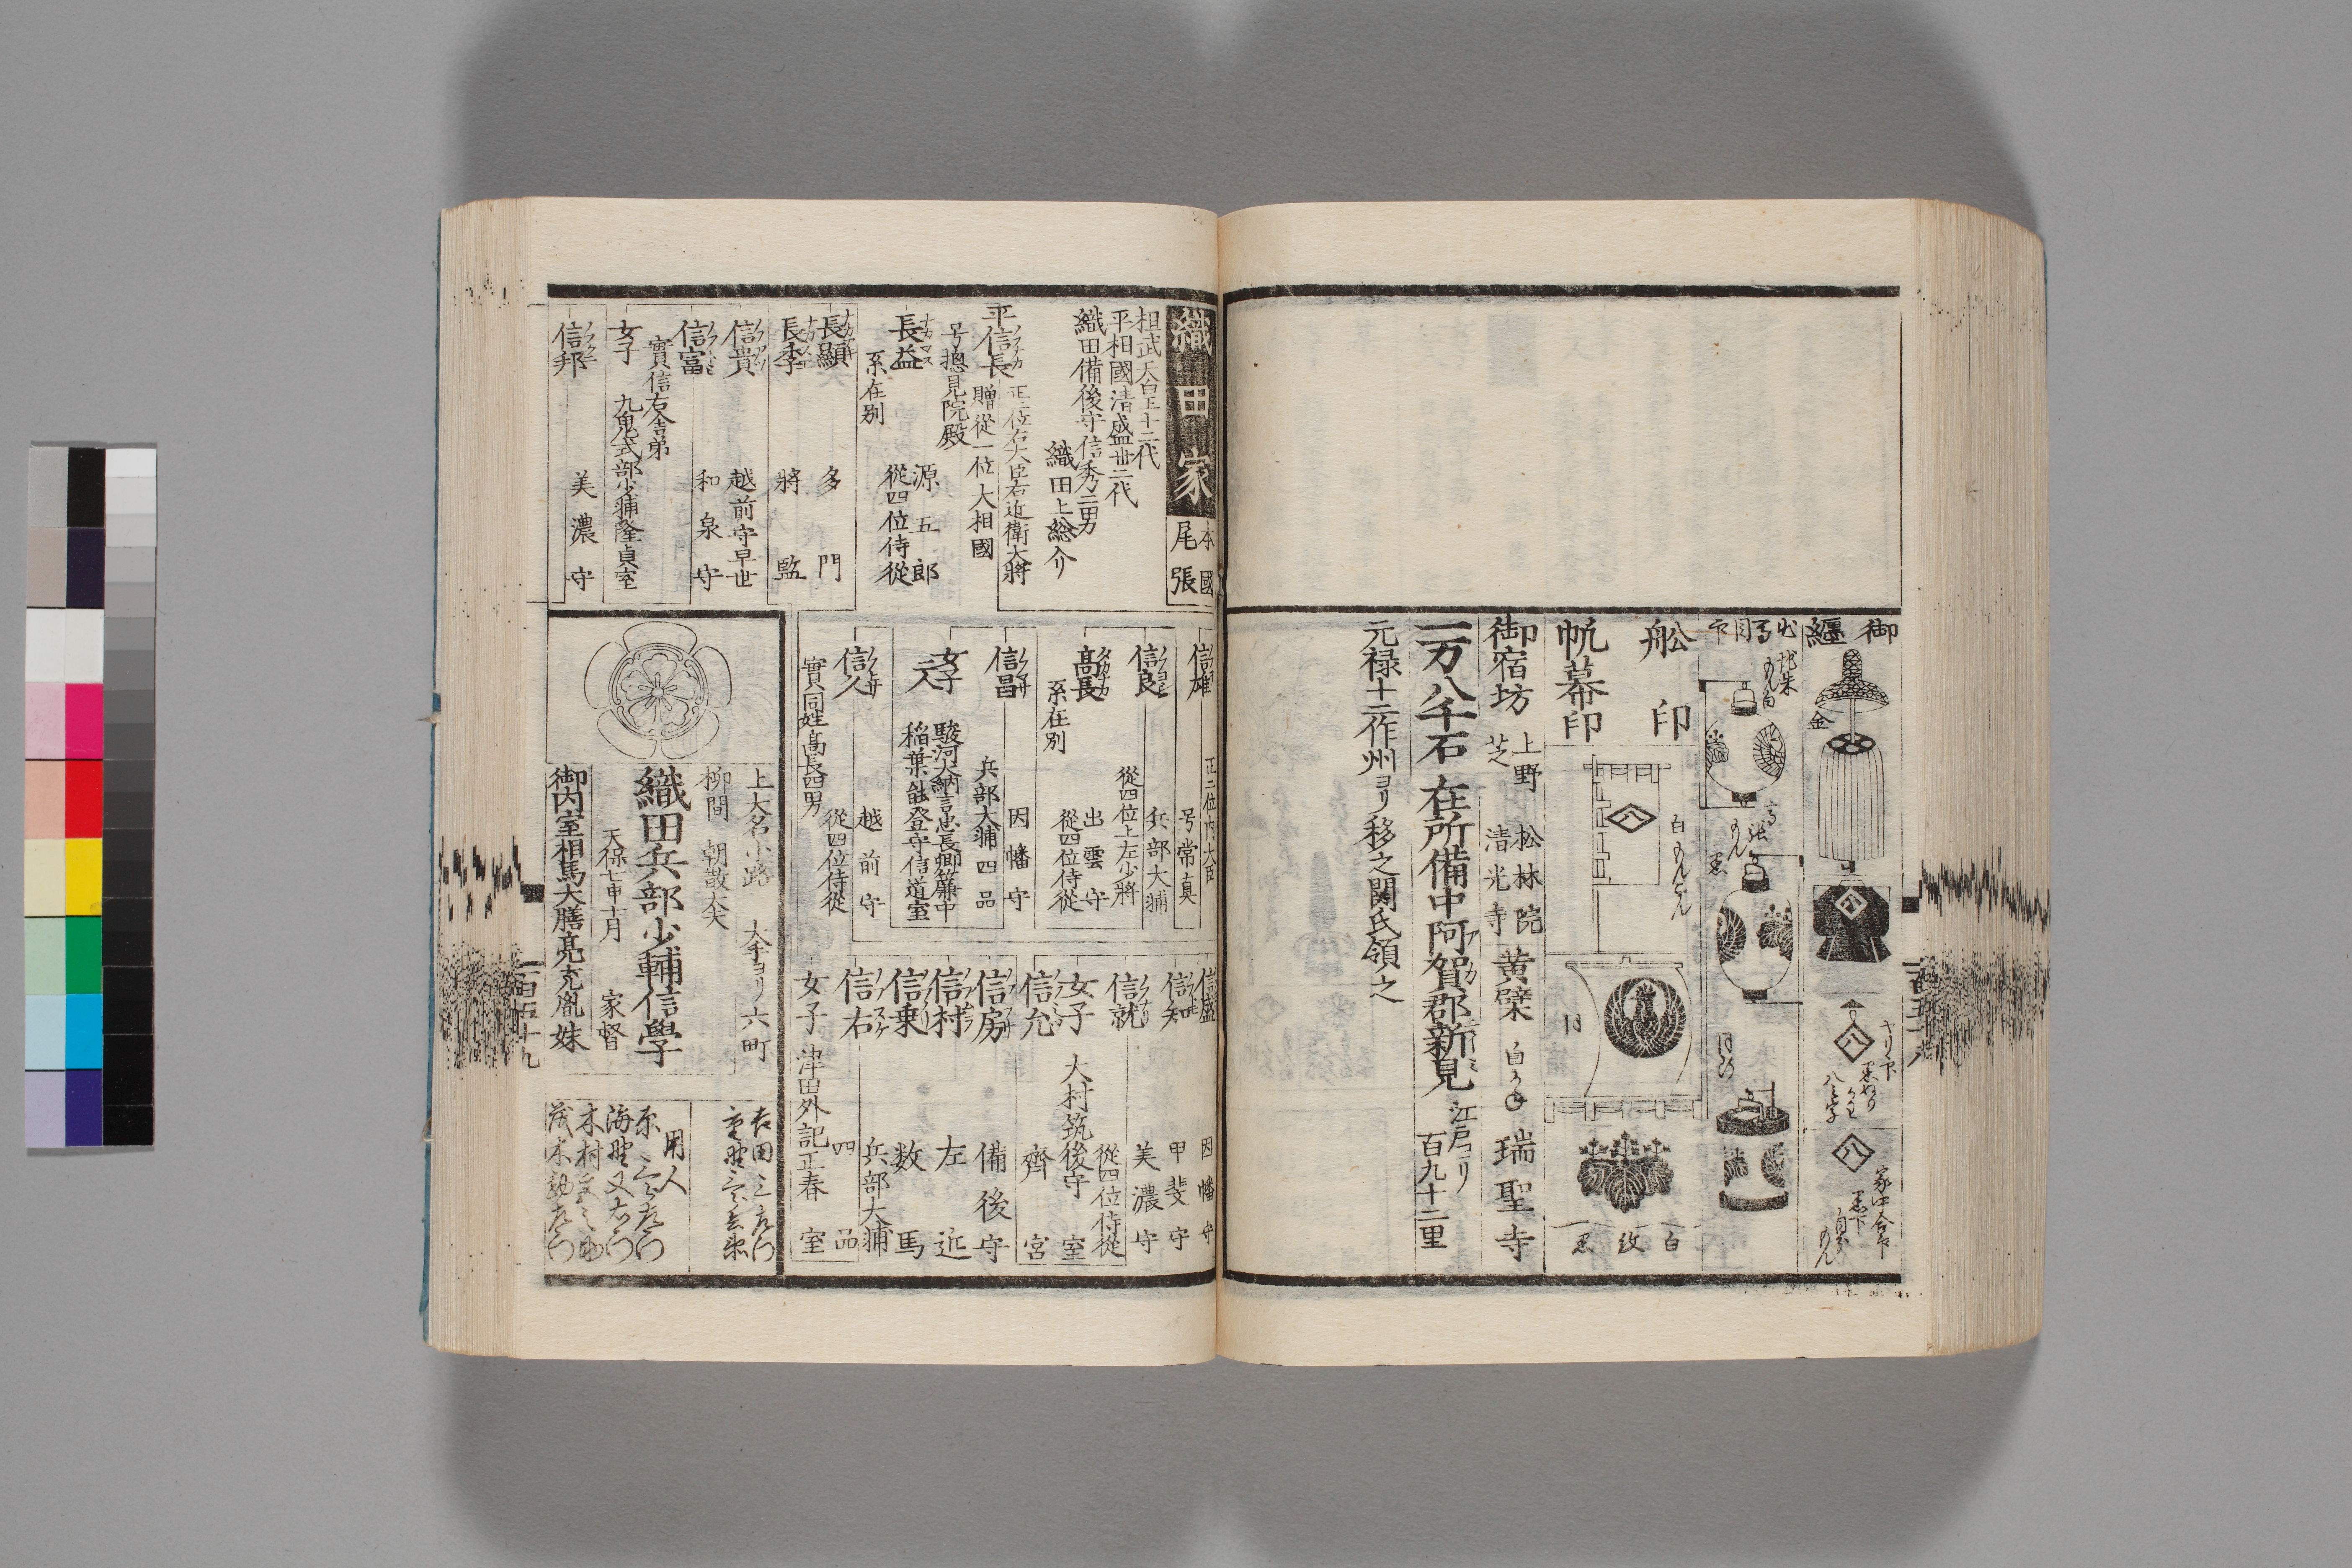 御纏
金
ヤリ印
八
八
家中合印
地朱
高張
船印
帆幕印
八
白
紋
黒
御宿坊
上野 松林院
芝 清光寺
黄檗
瑞聖寺
一万八千石
在所備中阿賀郡新見
江戸ヨリ
百九十二里
元禄十二作州ヨリ移之関氏領之
百五十八
織田家
本國
尾張
桓武天皇十二代
平相國清盛廿二代
織田備後守信秀二男
織田上総介
平信長
正二位右大臣右近衛大将
贈從一位大相國
号摠見院殿
長益
源五郎
從四位侍從
系在別
長顯
多門
長季
將監
信貴
越前守早世
信富
和泉守
實信右舎弟
女子
九鬼式部少輔隆貞室
信邦
美濃守
信雄
正二位内大臣
号常真
信良
兵部大輔
從四位上左少將
高長
出雲守
從四位侍從
系在別
信昌
因幡守
兵部大輔四品
女子
駿河大納言忠長卿簾中
二人
稲葉能登守信道室
信久
越前守
從四位侍從
實同姓高長四男
信盛
因幡守
信知
甲斐守
信就
美濃守
從四位侍從
女子
大村筑後守室
信允
齊宮
信房
備後守
信村
左近
信乗
数馬
信右
兵部大輔
四品
女子
津田外記正春室
上大名小路
大手ヨリ六町
柳間
朝散大夫
織田兵部少輔信學
天保七申十月
家督
御内室相馬大膳亮充胤妹
吉田三左衛門
用人
海野又右衛門
百五十九